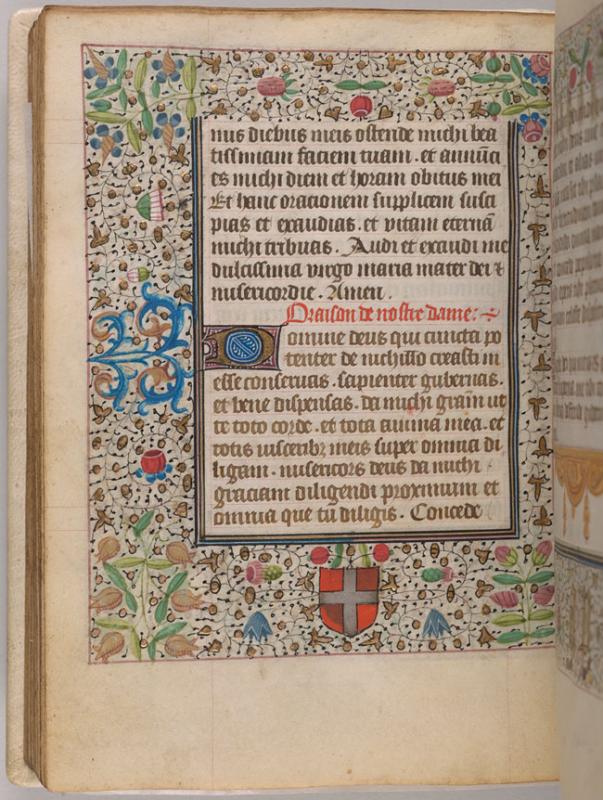 mis diebus meis ostende michi bea
tissimam faciem tuam. et annūci
es michi diem et horam obitus mei
Et hanc orationem supplicem susci
pias et exaudias. et vitam eternā
michi tribuas. Audi et exaudi me
dulcissima virgo maria mater dei &
misericordie. Amen.
Oraison de nostre dame:
Domine deus qui cuncta po
tenter de nichillo creasti in
esse conseruas. sapienter gubernas.
et bene dispensas. da michi grām ut
te toto corde. et tota anima mea. et
totis viscerib; meis super omnia di
ligam. misericors deus da michi
graciam diligendi proximum et
omnia que tu diligis. Concede